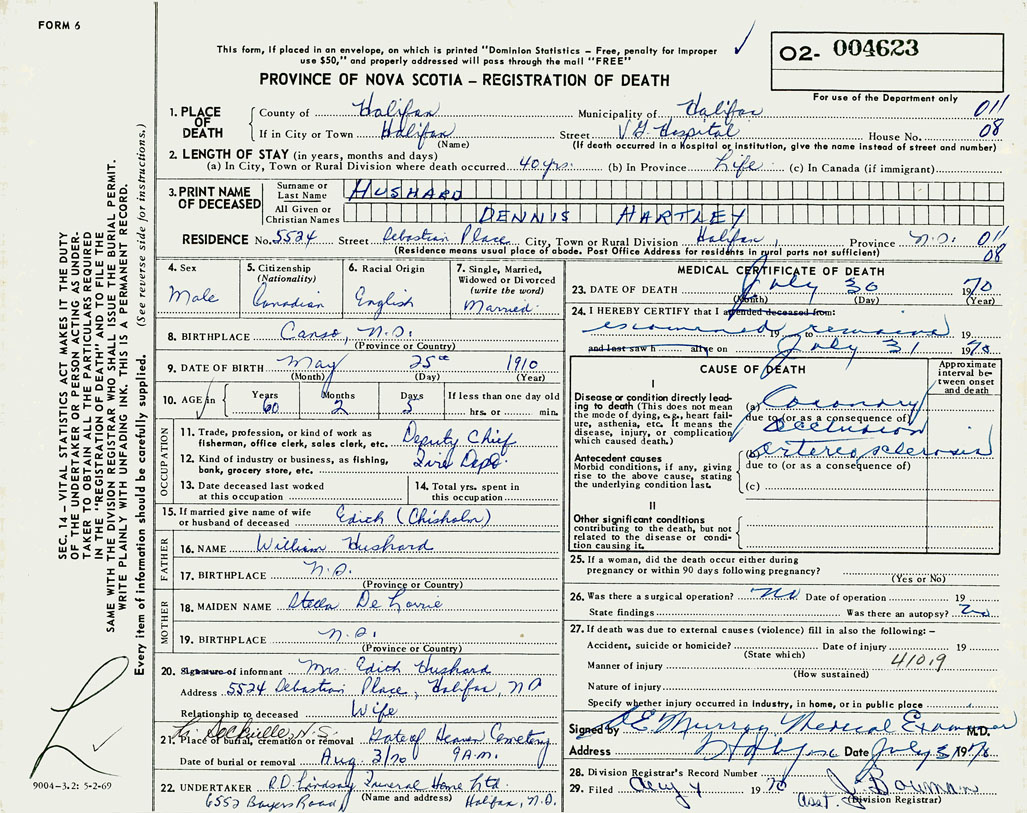 FORM 6
This form, if placed in an envelope, on which is printed "Dominion Statistics – Free, penalty for improper
use $50," and properly addressed will pass through the mail "FREE"
02- 004623
PROVINCE OF NOVA SCOTIA – REGISTRATION OF DEATH
For use of the Department only
1. PLACE OF DEATH
County of Halifax Municipality of Halifax 011
If in City or Town Halifax Street V.G. Hospital House No. 08
(Name) (If death occurred in a Hospital or institution, give the name instead of street and number)
2. LENGTH OF STAY (in years, months and days)
(a) In City, Town or Rural Division where death occurred 40 yrs. (b) In Province Life (c) In Canada (if immigrant)
3. PRINT NAME OF DECEASED
Surname or Last Name HUSHARD
All Given or Christian Names DENNIS HARTLEY
RESIDENCE No. 5524 Street Sebastian Place City, Town or Rural Division Halifax, Province N.S. 011
(Residence means usual place of abode. Post Office Address for residents in rural parts not sufficient) 08
4. Sex
Male
5. Citizenship
(Nationality)
Canadian
6. Racial Origin
English
7. Single, Married,
Widowed or Divorced
(write the word)
Married.
8. BIRTHPLACE Canso, N.S.
(Province or Country)
9. DATE OF BIRTH May 25th 1910
(Month) (Day) (Year)
10. AGE in Years Months Days If less than one day old
60 2 5 hrs. or min.
OCCUPATION
11. Trade, profession, or kind of work as
fisherman, office clerk, sales clerk, etc. Deputy Chief
12. Kind of industry or business, as fishing,
bank, grocery store, etc. Fire Dept.
13. Date deceased last worked
at this occupation
14. Total yrs. spent in
this occupation
15. If married give name of wife
or husband of deceased Edith (Chisholm)
FATHER
16. NAME William Hushard
17. BIRTHPLACE N.S.
(Province or Country)
MOTHER
18. MAIDEN NAME Stella
19. BIRTHPLACE N.S.
(Province or Country)
20. Signature of informant Mrs. Edith Hushard
Address 5524 Sebastian Place, Halifax, NS
Relationship to deceased Wife
Sackville N.S.
21. Place of burial, cremation or removal Gate of Heaven Cemetery
Date of burial or removal Aug. 3/70 9 A.M.
22. UNDERTAKER R.D. Lindsay Funeral Home Ltd.
(Name and address)
6552 Bayers Road, Halifax, N.S.
MEDICAL CERTIFICATE OF DEATH
23. DATE OF DEATH July 30 1970
(Month) (Day) (Year)
24. I HEREBY CERTIFY that I attended deceased from:
examined remains 19 19
and last saw h alive on July 31 1970
CAUSE OF DEATH
Approximate
interval be-
tween onset
and death
I
Disease or condition directly lead-
ing to death (This does not mean
the mode of dying, e.g., heart fail-
ure, asthenia, etc. It means the
disease, injury, or complication
which caused death.)
(a) Coronary
due to (or as a consequence of)
Occlusion
Antecedent causes
Morbid conditions, if any, giving
rise to the above cause, stating
the underlying condition last.
(b) Arteriosclerosis
due to (or as a consequence of)
(c)
II
Other significant conditions
contributing to the death, but not
related to the disease or condi-
tion causing it.
25. If a woman, did the death occur either during
pregnancy or within 90 days following pregnancy?
(Yes or No)
26. Was there a surgical operation? No Date of operation 19
State findings Was there an autopsy? No
27. If death was due to external causes (violence) fill in also the following: –
Accident, suicide or homicide? Date of injury 19
(State which)
Manner of injury 4109
(How sustained)
Nature of injury
Specify whether injury occurred in industry, in home, or in public place
Signed by D.E. Murray Medical Examiner M.D.
Address Halifax Date July 31 1970
28. Division Registrar's Record Number
29. Filed Aug 4 1970 Asst. J. Bowman
(Division Registrar)
SEC. 14 – VITAL STATISTICS ACT MAKES IT THE DUTY
OF THE UNDERTAKER OR PERSON ACTING AS UNDER-
TAKER TO OBTAIN ALL THE PARTICULARS REQUIRED
IN THE "REGISTRATION OF DEATH" AND TO FILE THE
SAME WITH THE DIVISION REGISTRAR WHO SHALL ISSUE THE BURIAL PERMIT.
WRITE PLAINLY WITH UNFADING INK. THIS IS A PERMANENT RECORD.
Every item of information should be carefully supplied. (See reverse side for instructions.)
9004–3.2: 5-2-69